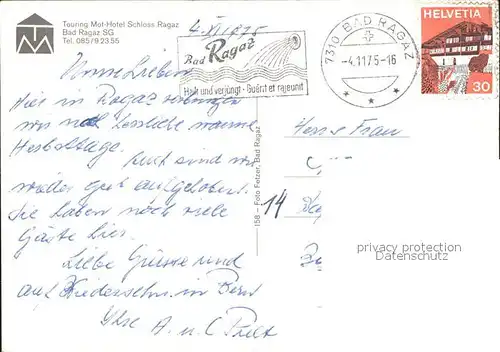 Touring Mot-Hotel Schloss Ragaz
Bad Ragaz SG
Tel. 085/9 23 55
4. XI 1975
Bad Ragaz
Heilt und verjüngt - Guérit et rajeunit
7310 BAD RAGAZ
-4.11.75-16
HELVETIA
30
Meine Lieben
Hier in Ragaz verbringen
wir noch herrliche warme
Herbsttage.
Auch sind wir
wieder gut aufgehoben!
Sie haben noch viele
Gäste hier.
Liebe Grüsse und
auf Wiedersehn in Bern
Ihre A. u. C
Herr u Frau
14
158 - Foto Fetzer, Bad Ragaz
privacy protection
Datenschutz